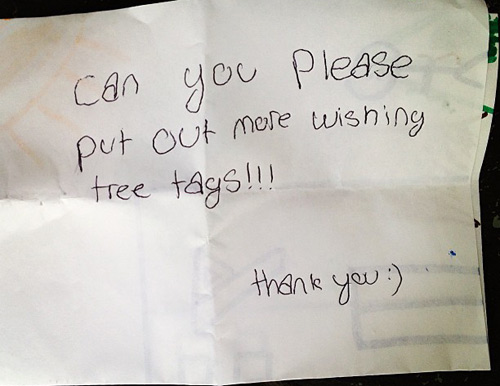 Can you Please
put out more wishing
tree tags!!!
thank you :)